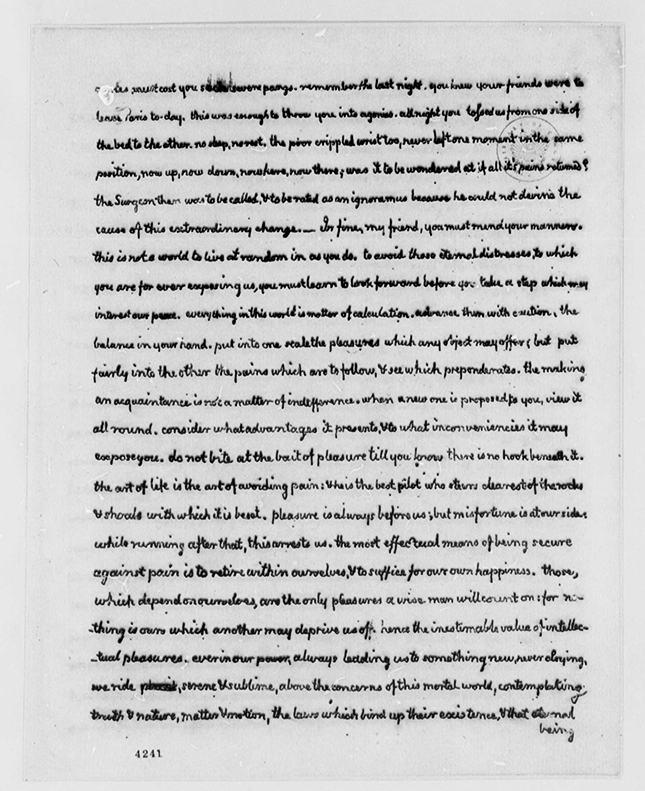 must cost you severe pangs. remember the last night. you knew your friends were to
leave Paris to-day. this was enough to throw you into agonies. all night you tossed us from one side of
the bed to the other. no sleep, no rest. the poor crippled wrist too, never left one moment in the same
position, now up, now down, now here, now there; was it to be wondered at if all it's pains returned?
the Surgeon then was to be called, & to be rated as an ignoramus because he could not devine the
cause of this extraordinary change. — In fine, my friend, you must mend your manners.
this is not a world to live at random in as you do. to avoid these eternal distresses, to which
you are for ever exposing us, you must learn to look forward before you take a step which may
interest our peace. everything in this world is matter of calculation. advance then with caution, the
balance in your hand. put into one scale the pleasures which any object may offer; but put
fairly into the other the pains which are to follow, & see which preponderates. the making
an acquaintance is not a matter of indifference. when a new one is proposed to you, view it
all round. consider what advantages it presents, & to what inconveniencies it may
expose you. do not bite at the bait of pleasure till you know there is no hook beneath it.
the art of life is the art of avoiding pain: & he is the best pilot who steers clearest of the rocks
& shoals with which it is beset. pleasure is always before us; but misfortune is at our side:
while running after that, this arrests us. the most effectual means of being secure
against pain is to retire within ourselves, & to suffice for our own happiness. those,
which depend on ourselves, are the only pleasures a wise man will count on: for no-
-thing is ours which another may deprive us of. hence the inestimable value of intellec-
-tual pleasures. ever in our power, always leading us to something new, never cloying,
we ride, serene & sublime, above the concerns of this mortal world, contemplating
truth & nature, matter & motion, the laws which bind up their existence, & that eternal
being
4241